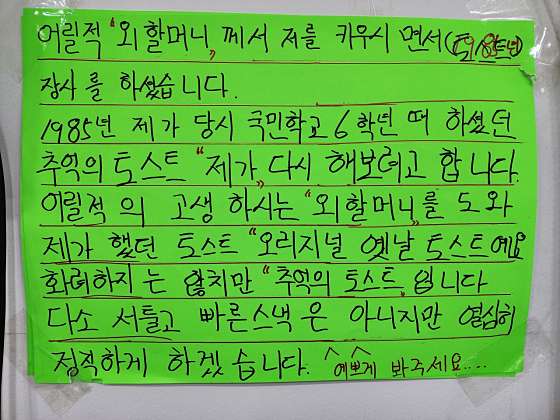 어릴적 "외할머니" 께서 저를 키우시면서 (1985년)
장사를 하셨습니다.
1985년 제가 당시 국민학교 6학년 때 하셨던
추억의 토스트 "제가" 다시 해보려고 합니다.
어릴적의 고생 하시는 "외할머니"를 도와
제가 했던 토스트 "오리지널 옛날 토스트예요
화려하지는 않치만 "추억의 토스트" 입니다
다소 서툴고 빠른스낵은 아니지만 열심히
정직하게 하겠습니다. ^ ^ 예쁘게 봐주세요....